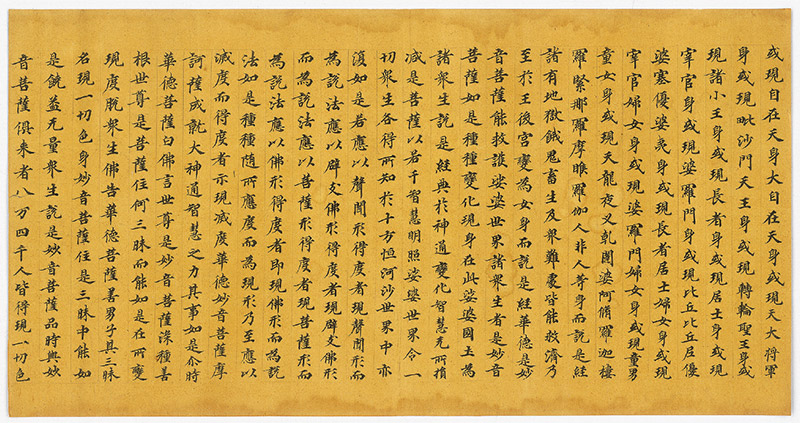 或現自在天身大自在天身或現天大將軍
身或現毗沙門天王身或現轉輪聖王身或
現諸小王身或現長者身或現居士身或現
宰官身或現婆羅門身或現比丘比丘尼優
婆塞優婆夷身或現長者居士婦女身或現
宰官婦女身或現婆羅門婦女身或現童男
童女身或現天龍夜叉乾闥婆阿脩羅迦樓
羅緊那羅摩睺羅伽人非人等身而說是經
諸有地獄餓鬼畜生及衆難處皆能救濟乃
至於王後宮變為女身而說是經華德是妙
音菩薩能救護娑婆世界諸衆生者是妙音
菩薩如是種種變化現身在此娑婆國土為
諸衆生說是經典於神通變化智慧无所損
減是菩薩以若干智慧明照娑婆世界令一
切衆生各得所知於十方恒河沙世界中亦
復如是若應以聲聞形得度者現聲聞形而
為說法應以辟支佛形得度者現辟支佛形
而為說法應以菩薩形得度者現菩薩形而
為說法應以佛形得度者即現佛形而為說
法如是種種隨所應度而為現形乃至應以
滅度而得度者示現滅度華德妙音菩薩摩
訶薩成就大神通智慧之力其事如是尒時
華德菩薩白佛言世尊是妙音菩薩深種善
根世尊是菩薩住何三昧而能如是在所變
現度脫衆生佛告華德菩薩善男子其三昧
名現一切色身妙音菩薩住是三昧中能如
是饒益无量衆生說是妙音菩薩品時與妙
音菩薩俱來者八万四千人皆得現一切色